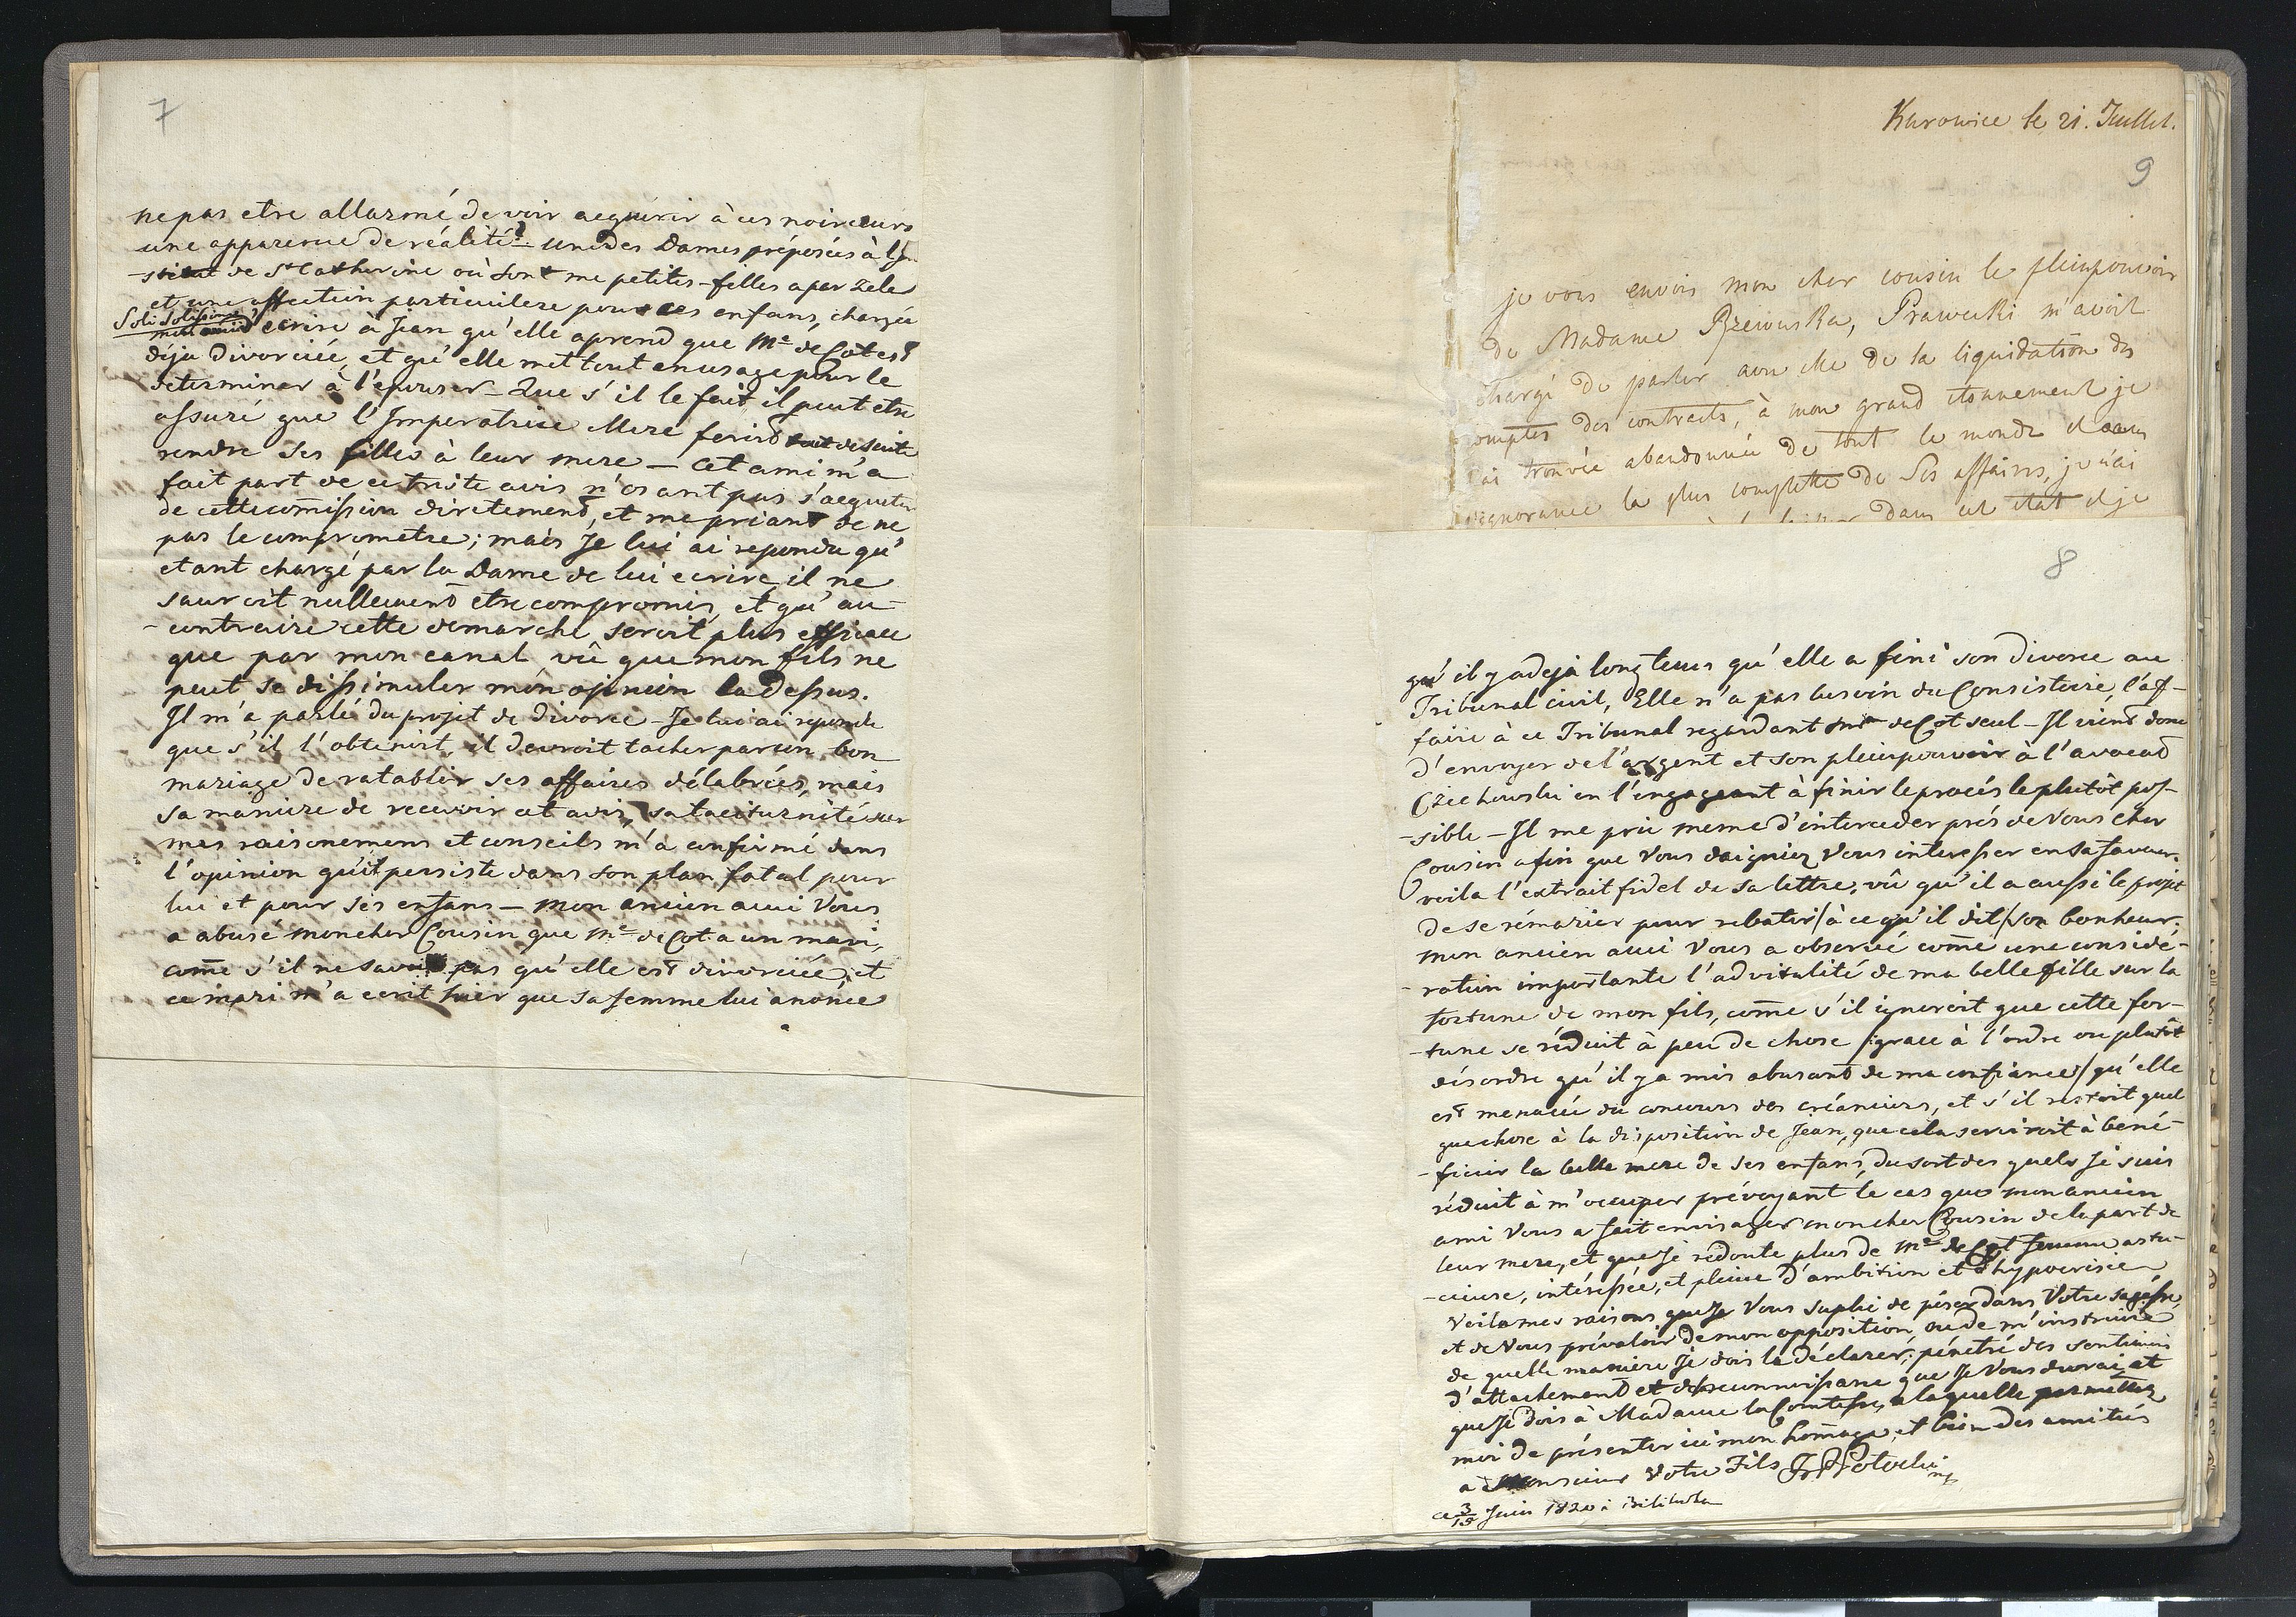 7
ne pas etre allarmé de voir aequérir à ces noirceurs
une apparence de réalité? – une des Dames préposées à l'In-
-stitut de Ste Catherine où sont me petites-filles a par zele
et une affection particuliere pour ces enfans, chargée
Soli Solissimo
mon ami d'ecrire à Jean qu'elle aprend que Me de Cot est
déja divorciée, et qu'elle met tout en usage pour le
determiner à l'epouser – Que s'il le fait il peut etre
assuré que l'Imperatrice Mere feroit tout de suite
rendre ses filles à leur mere – Cet ami m'a
fait part de ce triste avis n'osant pas s'aequiter
de cette comission diretement, et me priant de ne
pas le comprometre; mais Je lui ai repondu qu'
etant chargé par la Dame de lui ecrire, il ne
sauroit nullement etre compromis, et qu'au-
-contraire cette demarche seroit plus efficace
que par mon canal, vû que mon fils ne
peut se dissimuler mon opinion la dessus.
Il m'a parlé du projet de divorce – Je lui ai repondu
que s'il l'obtenoit, il devroit tacher par un bon
mariage de ratablir ses affaires délabrées, mais
sa maniere de recevoir cet avis, sa taciturnité sur
mes raisonemens et conseils m'a confirmé dans
l'opinion qu'il persiste dans son plan fatal pour
lui et pour ses enfans – mon ancien ami Vous
a abusé mon cher Cousin que Me de Cot a un mari,
come s'il ne savoit pas qu'elle est divorciée, et
ce mari m'a ecrit hier que sa femme lui anonce
Kurowice le 21. Juillet.
9
je vous envois mon cher cousin le pleinpouvoir
de Madame Rzewuska, Prawecki m'avoit
chargé de parler avec elle de la liquidation des
comptes des contracts, à mon grand etonnement je
l'ai trouvée abandonnée de tout le monde et dans
l'ignorance la plus complette de ses affaires, je n'ai
dans cet etat et je
8
qu'il y a deja longtems qu'elle a fini son divorce au
Tribunal civil, Elle n'a pas besoin du Consistoire, l'af-
faire à ce Tribunal regardant Mr de Cot seul – Il vient donc
d'envoyer de l'argent et son pleinpouvoir à l'avocat
Czechowski en l'engageant à finir le procés le plutôt pos-
-sible – Il me prie meme d'interceder prés de Vous cher
Cousin afin que Vous daigniez Vous interesser en sa faveur.
voila l'extrait fidel de sa lettre, vû qu'il a aussi le projet
de se rémarier pour rebatir /à ce qu'il dit/ son bonheur.
mon ancien ami Vous a observé come une considé-
-ration importante l'advitalité de ma belle fille sur la
fortune de mon fils, come s'il ignoroit que cette for-
-tune se réduit à peu de chose /grace à l'ordre ou plutôt
désordre qu'il y a mis abusant de ma confiance/ qu'elle
est menacée du concours des créanciers, et s'il restoit quel
que chose à la disposition de Jean, que cela serviroit à béné-
-ficier la belle mere de ses enfans, du sort des quels Je suis
réduit à m'occuper prévoyant le cas que mon ancien
ami Vous a fait envisager mon cher Cousin de la part de
leur mere, et que Je redoute plus de Me de Cot femme astu-
-cieuse, intéréssée, et pleine d'ambition et d'hypocrisie –
Voila mes raisons que Je Vous suplie de péser dans Votre sagesse,
et de Vous prévaloir de mon opposition, ou de m'instruire
de quelle maniere Je dois la déclarer; pénétré des sentimens
d'attachement et de reconnoissance que Je Vous devrai, et
que Je dois à Madame la Comtesse, a laquelle permettez
moi de présenter ici mon homage, et bien des amitiés
a Monsieur Votre Fils Potocki
ce 3/15 Juin 1820 à